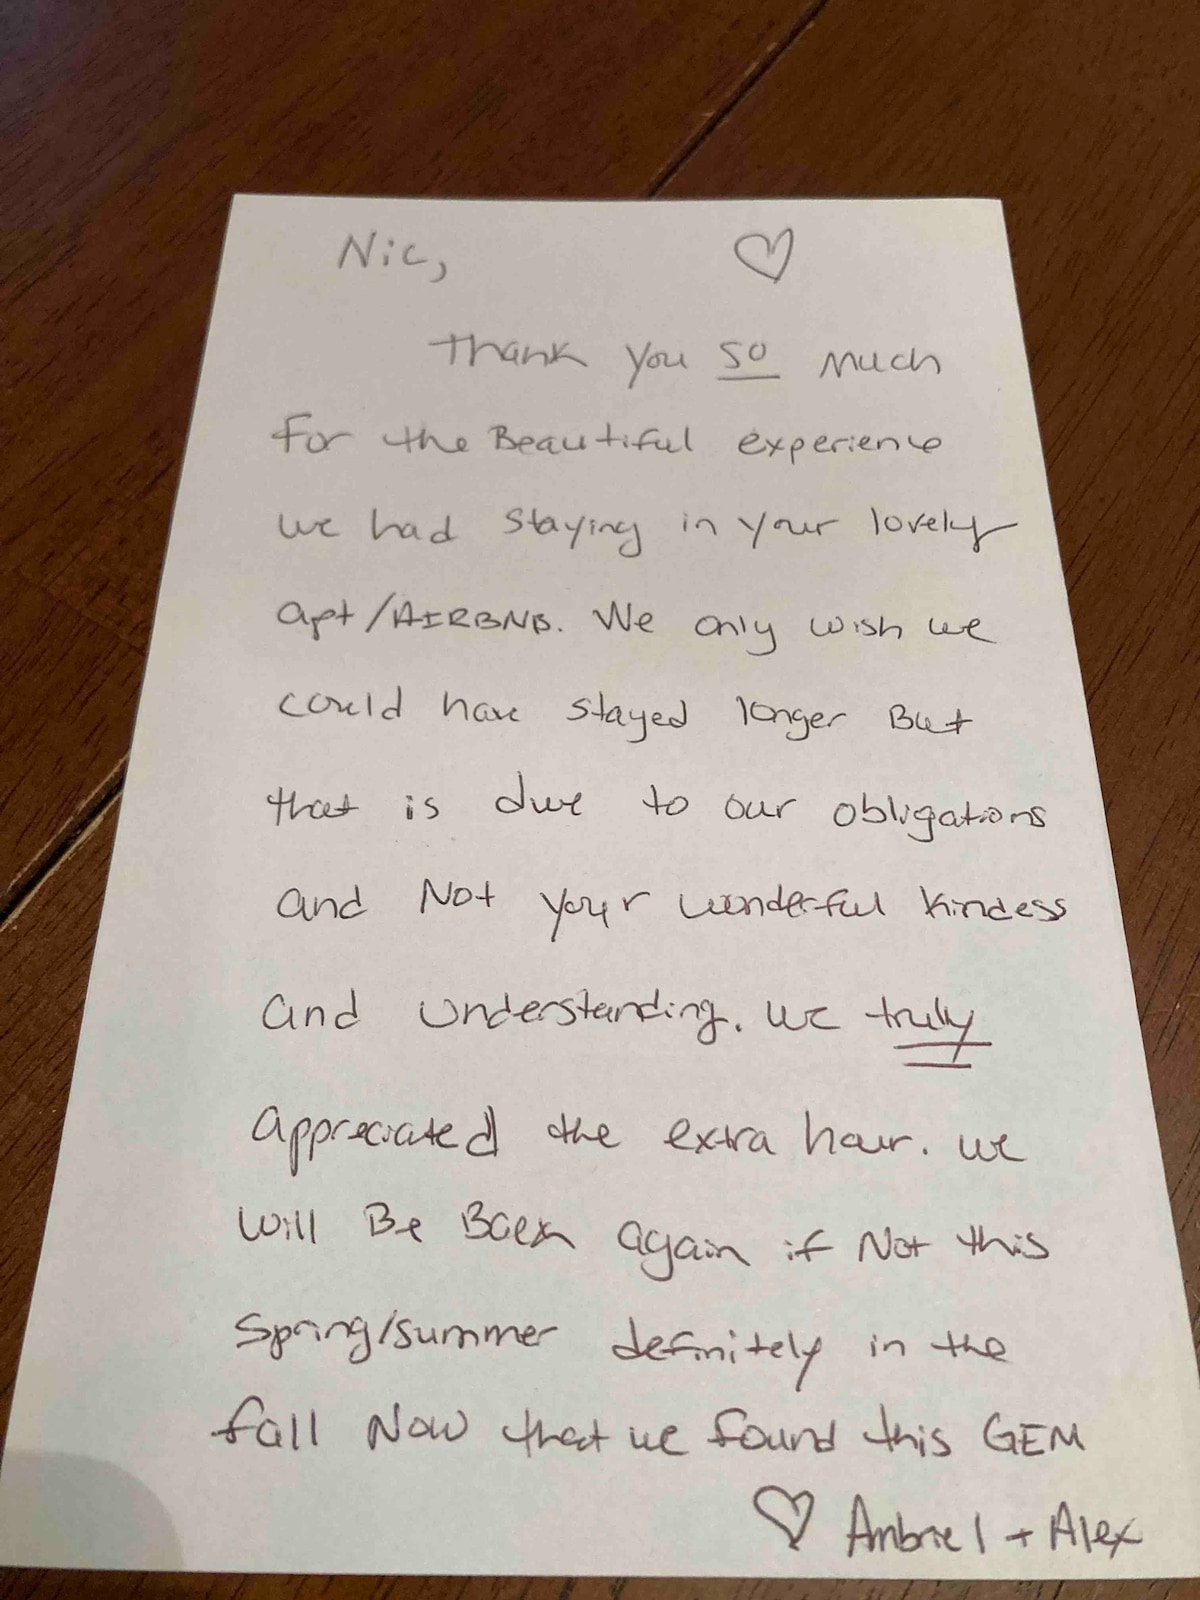 Nic, ♡
Thank you so much
for the Beautiful experience
we had staying in your lovely
apt/AIRBNB. We only wish we
could have stayed longer But
that is due to our obligations
and Not your wonderful kindess
and understanding. We truly
appreciated the extra hour. We
will Be Back again if Not this
Spring/summer definitely in the
fall Now that we found this GEM
♡ Ambriel + Alex